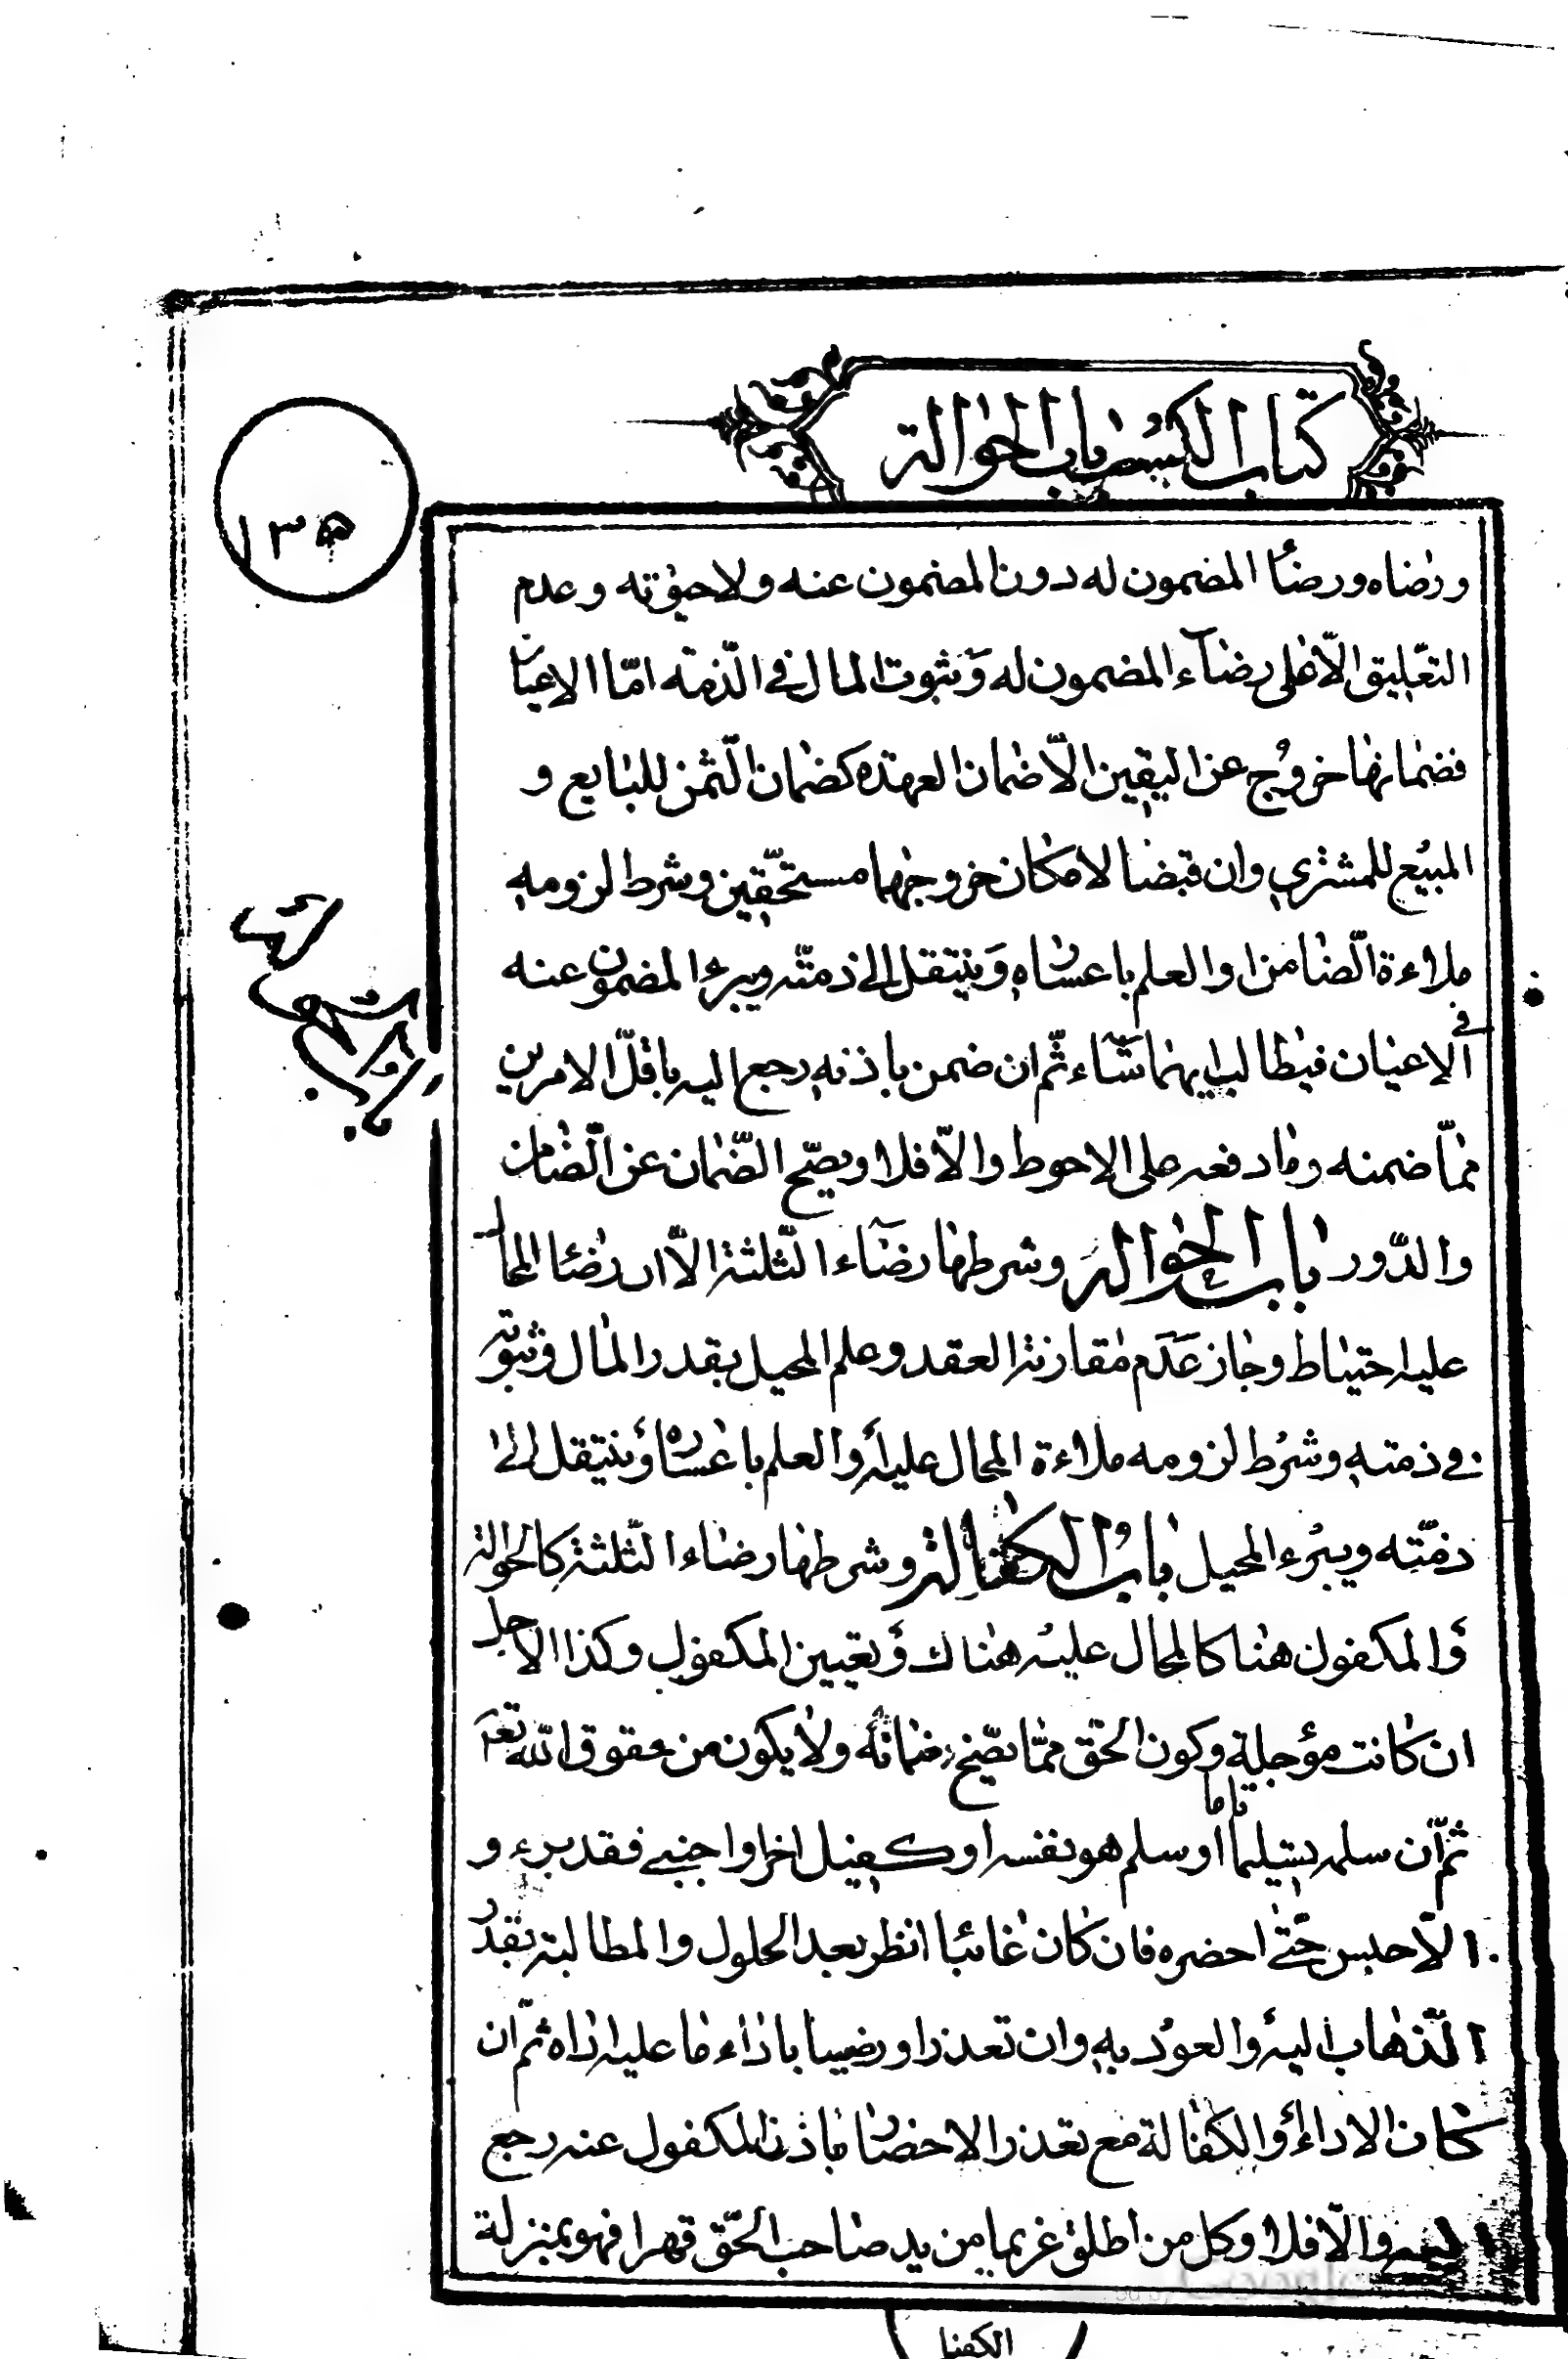 كتاب الكسب باب الحوالة
١٣٥
ورضاه ورضا المضمون له دون المضمون عنه ولا حيوته وعدم
التعليق الا على رضاء المضمون له وثبوت المال في الذمة اما الاعيان
فضمانها خروج عن اليقين الا ضمان العهدة كضمان الثمن للبايع و
المبيع للمشتري وان قبضا لامكان خروجهما مستحقين وشرط لزومه
ملاءة الضامن او العلم باعساره وينتقل الى ذمته ويبرء المضمون عنه
في
الاعيان فيطالب ايهما شاء ثم ان ضمن باذنه رجع اليه باقل الامرين
مما ضمنه وما دفعه على الاحوط والا فلا ويصح الضمان عن الضامن
والدور باب الحوالة وشرطها رضاء الثلثة الا ان رضا المحال
عليه احتياط وجاز عدم مقارنة العقد وعلم المحيل بقدر المال وثبوته
في ذمته وشرط لزومه ملاءة المحال عليه او العلم باعساره وينتقل الى
ذمته ويبرء المحيل باب الكفالة وشرطها رضاء الثلثة كالحوالة
والمكفول هنا كالمحال عليه هناك وتعيين المكفول وكذا الاجل
ان كانت مؤجلة وكون الحق مما يصح ضمانه ولا يكون من حقوق الله تعم
تاما
ثم ان سلمه تسليما او سلم هو نفسه او كفيل اخر او اجنبي فقد برء و
الا حبس حتى احضره فان كان غائبا انظر بعد الحلول والمطالبة بقدر
الذهاب اليه والعود به وان تعذر او رضيا باداء ما عليه اداه ثم ان
كان الاداء او الكفالة مع تعذر الاحضار باذن المكفول عنه رجع
اليه والا فلا وكل من اطلق غريما من يد صاحب الحق قهرا فهو بمنزلة
الكفيل